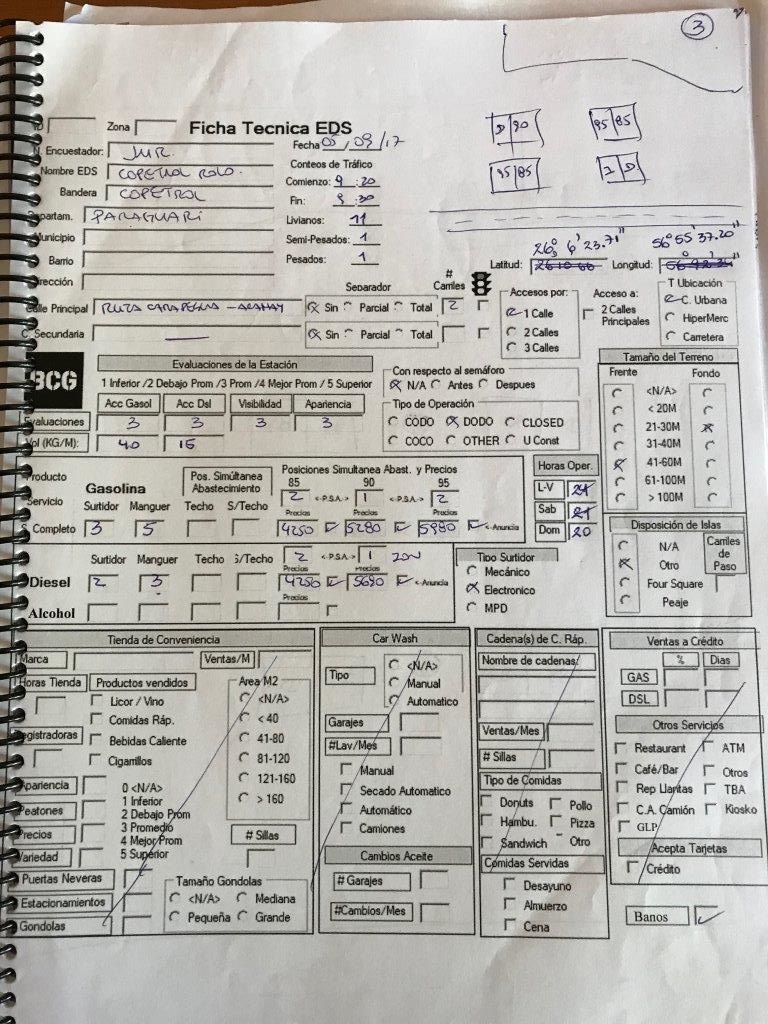 3
Zona Ficha Tecnica EDS
Encuestador: JUR.
Fecha 05/09/17
D 90 95 85
95 85 2 D
Nombre EDS COPETROL ROLO.
Conteos de Tráfico
Bandera COPETROL
Comienzo: 9:20
Fin: 9:30
Departam. PARAGUARI
Livianos: 11
Municipio
Semi-Pesados: 1
Barrio
Pesados: 1
26° 6' 23.71" 56° 55' 37.20"
Latitud: Longitud:
Dirección
Separador # Carriles
Accesos por: Acceso a: T Ubicación
Calle Principal RUTA CARAPEGUA - ACAHAY Sin Parcial Total 2
1 Calle 2 Calles Principales C. Urbana
C. Secundaria — Sin Parcial Total
2 Calles HiperMerc
3 Calles Carretera
BCG
Evaluaciones de la Estación
1 Inferior /2 Debajo Prom /3 Prom /4 Mejor Prom / 5 Superior
Acc Gasol Acc Dsl Visibilidad Apariencia
Evaluaciones 3 3 3 3
Vol (KG/M): 40 15
Con respecto al semáforo
N/A Antes Despues
Tipo de Operación
CODO DODO CLOSED
COCO OTHER U Const
Tamaño del Terreno
Frente Fondo
<N/A>
< 20M
21-30M
31-40M
41-60M
61-100M
> 100M
Producto Gasolina Pos. Simúltanea Abastecimiento
Posiciones Simultanea Abast. y Precios
85 90 95
2 <-P.S.A.-> 1 <-P.S.A.-> 2
Servicio Surtidor Manguer Techo S/Techo
Precios Precios Precios
S. Completo 3 5 4250 5280 5980 <-Anuncia
Horas Oper.
L-V 24
Sab 21
Dom 20
Disposición de Islas
N/A
Otro
Four Square
Peaje
Carriles de Paso
Surtidor Manguer Techo S/Techo 2 <-P.S.A.-> 1
Precios Precios
Diesel 2 3 4250 5690 <-Anuncia
Precios
Alcohol
Tipo Surtidor
Mecánico
Electronico
MPD
Tienda de Conveniencia
Marca Ventas/M
Horas Tienda Productos vendidos
Licor / Vino
Comidas Ráp.
Registradoras Bebidas Caliente
Cigarrillos
Area M2
<N/A>
< 40
41-80
81-120
121-160
> 160
Apariencia
Peatones
Precios
Variedad
0 <N/A>
1 Inferior
2 Debajo Prom
3 Promedio
4 Mejor Prom
5 Superior
# Sillas
Puertas Neveras
Estacionamientos
Gondolas
Tamaño Gondolas
<N/A> Mediana
Pequeña Grande
Car Wash
Tipo
<N/A>
Manual
Automatico
Garajes
#Lav/Mes
Manual
Secado Automatico
Automático
Camiones
Cambios Aceite
# Garajes
#Cambios/Mes
Cadena(s) de C. Ráp.
Nombre de cadenas:
Ventas/Mes
# Sillas
Tipo de Comidas
Donuts Pollo
Hambu. Pizza
Sandwich Otro
Comidas Servidas
Desayuno
Almuerzo
Cena
Ventas a Crédito
% Dias
GAS
DSL
Otros Servicios
Restaurant ATM
Café/Bar Otros
Rep Llantas TBA
C.A. Camión Kiosko
GLP
Acepta Tarjetas
Crédito
Banos